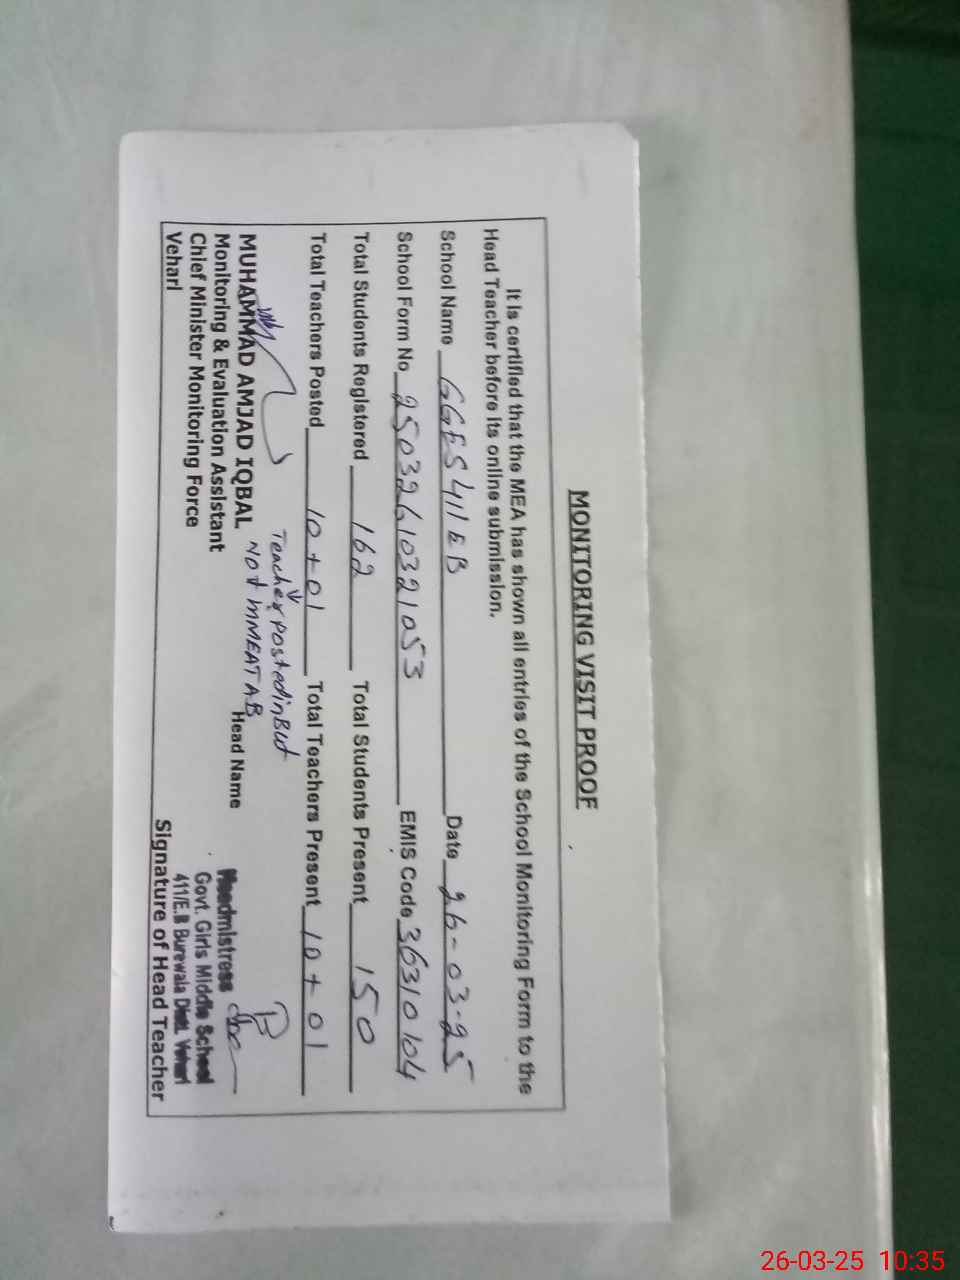 MONITORING VISIT PROOF
It is certified that the MEA has shown all entries of the School Monitoring Form to the
Head Teacher before its online submission.
School Name GGES 411 EB Date 26-03-25
School Form No 25032610321053 EMIS Code 36310104
Total Students Registered 162 Total Students Present 150
Total Teachers Posted 10+01 Total Teachers Present 10+01
Teacher posted in But
Not MMEAT AB
MUHAMMAD AMJAD IQBAL
Monitoring & Evaluation Assistant
Chief Minister Monitoring Force
Vehari
Head Name
Headmistress
Govt. Girls Middle School
411/E.B Burewala Distt. Vehari
Signature of Head Teacher
26-03-25 10:35